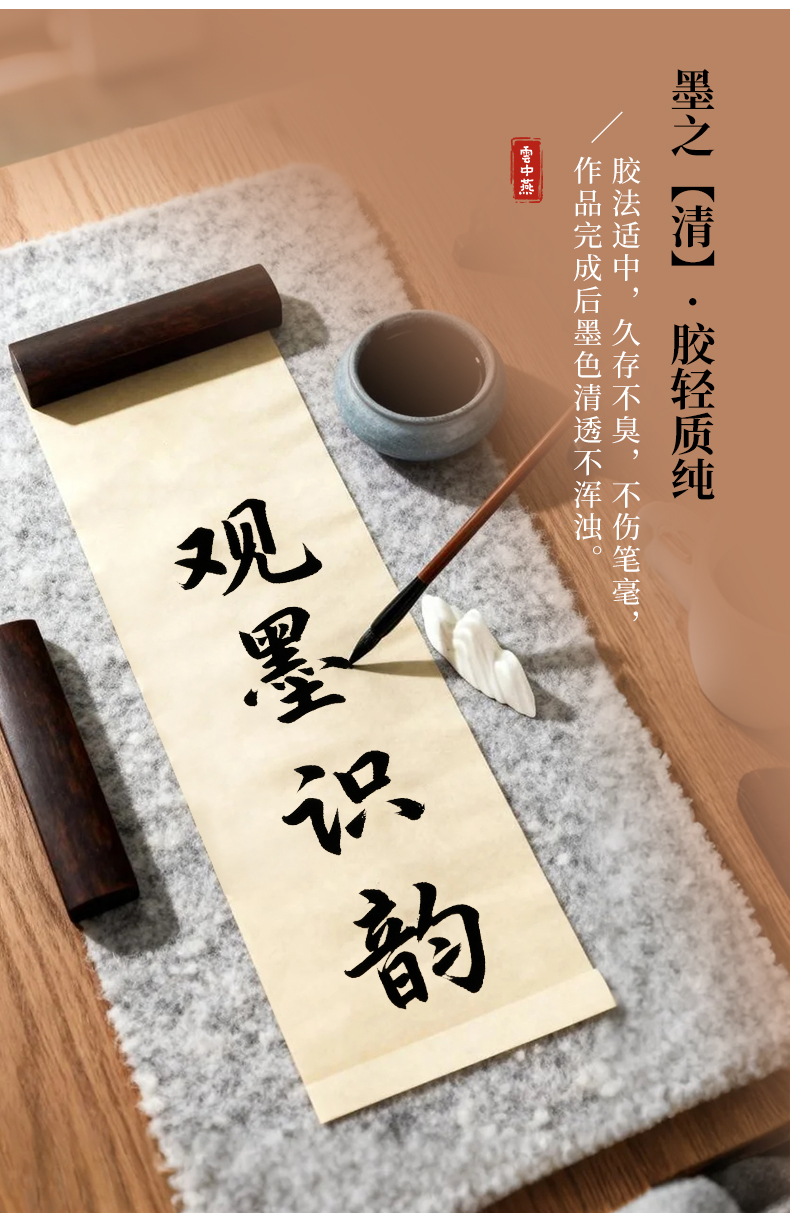 墨之【清】·胶轻质纯
胶法适中，久存不臭，不伤笔毫，
作品完成后墨色清透不浑浊。
雲中燕
观墨识韵